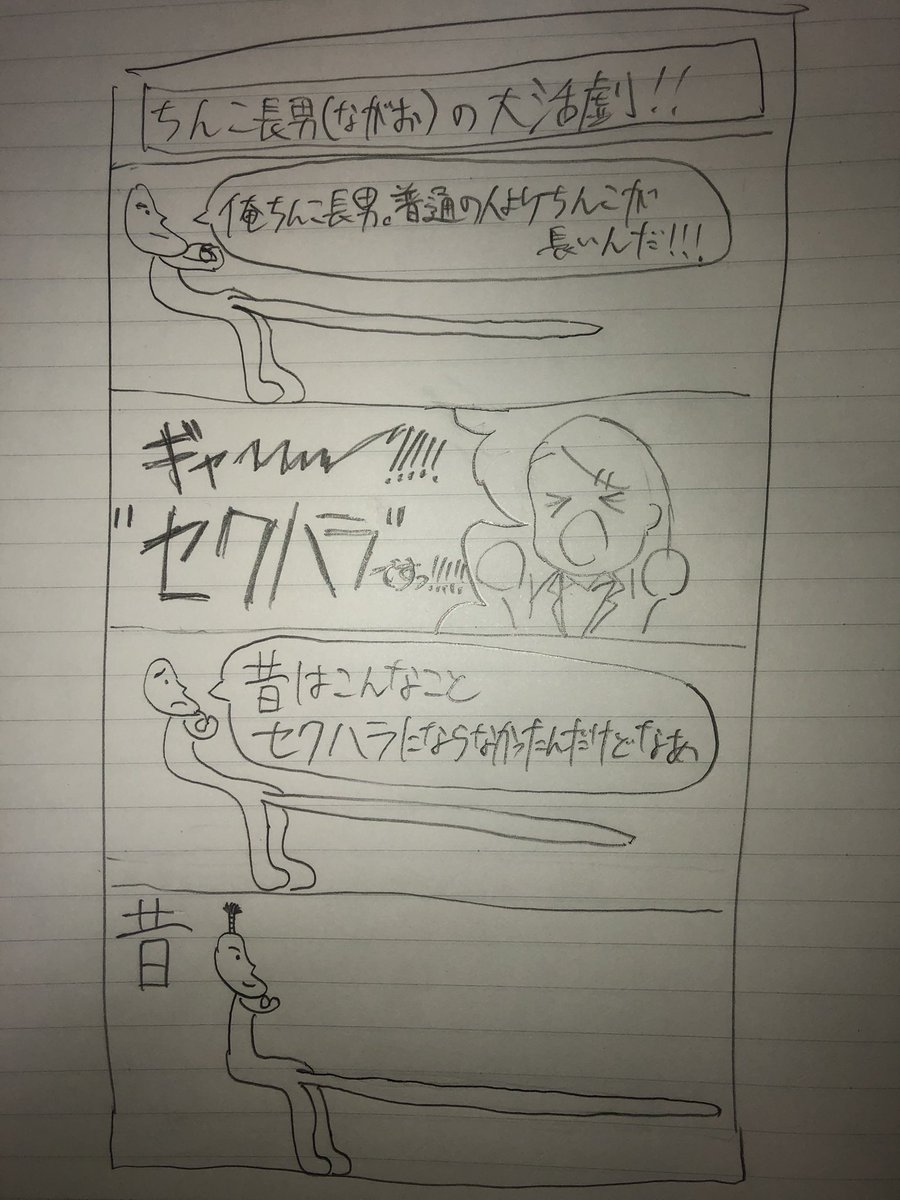 ちんこ長男(ながお)の大活劇!!
俺ちんこ長男。普通の人よりちんこが
長いんだ!!!
ギャーーー!!!!!
"セクハラ"ですっ!!!!!
昔はこんなこと
セクハラにならなかったんだけどなぁ
昔